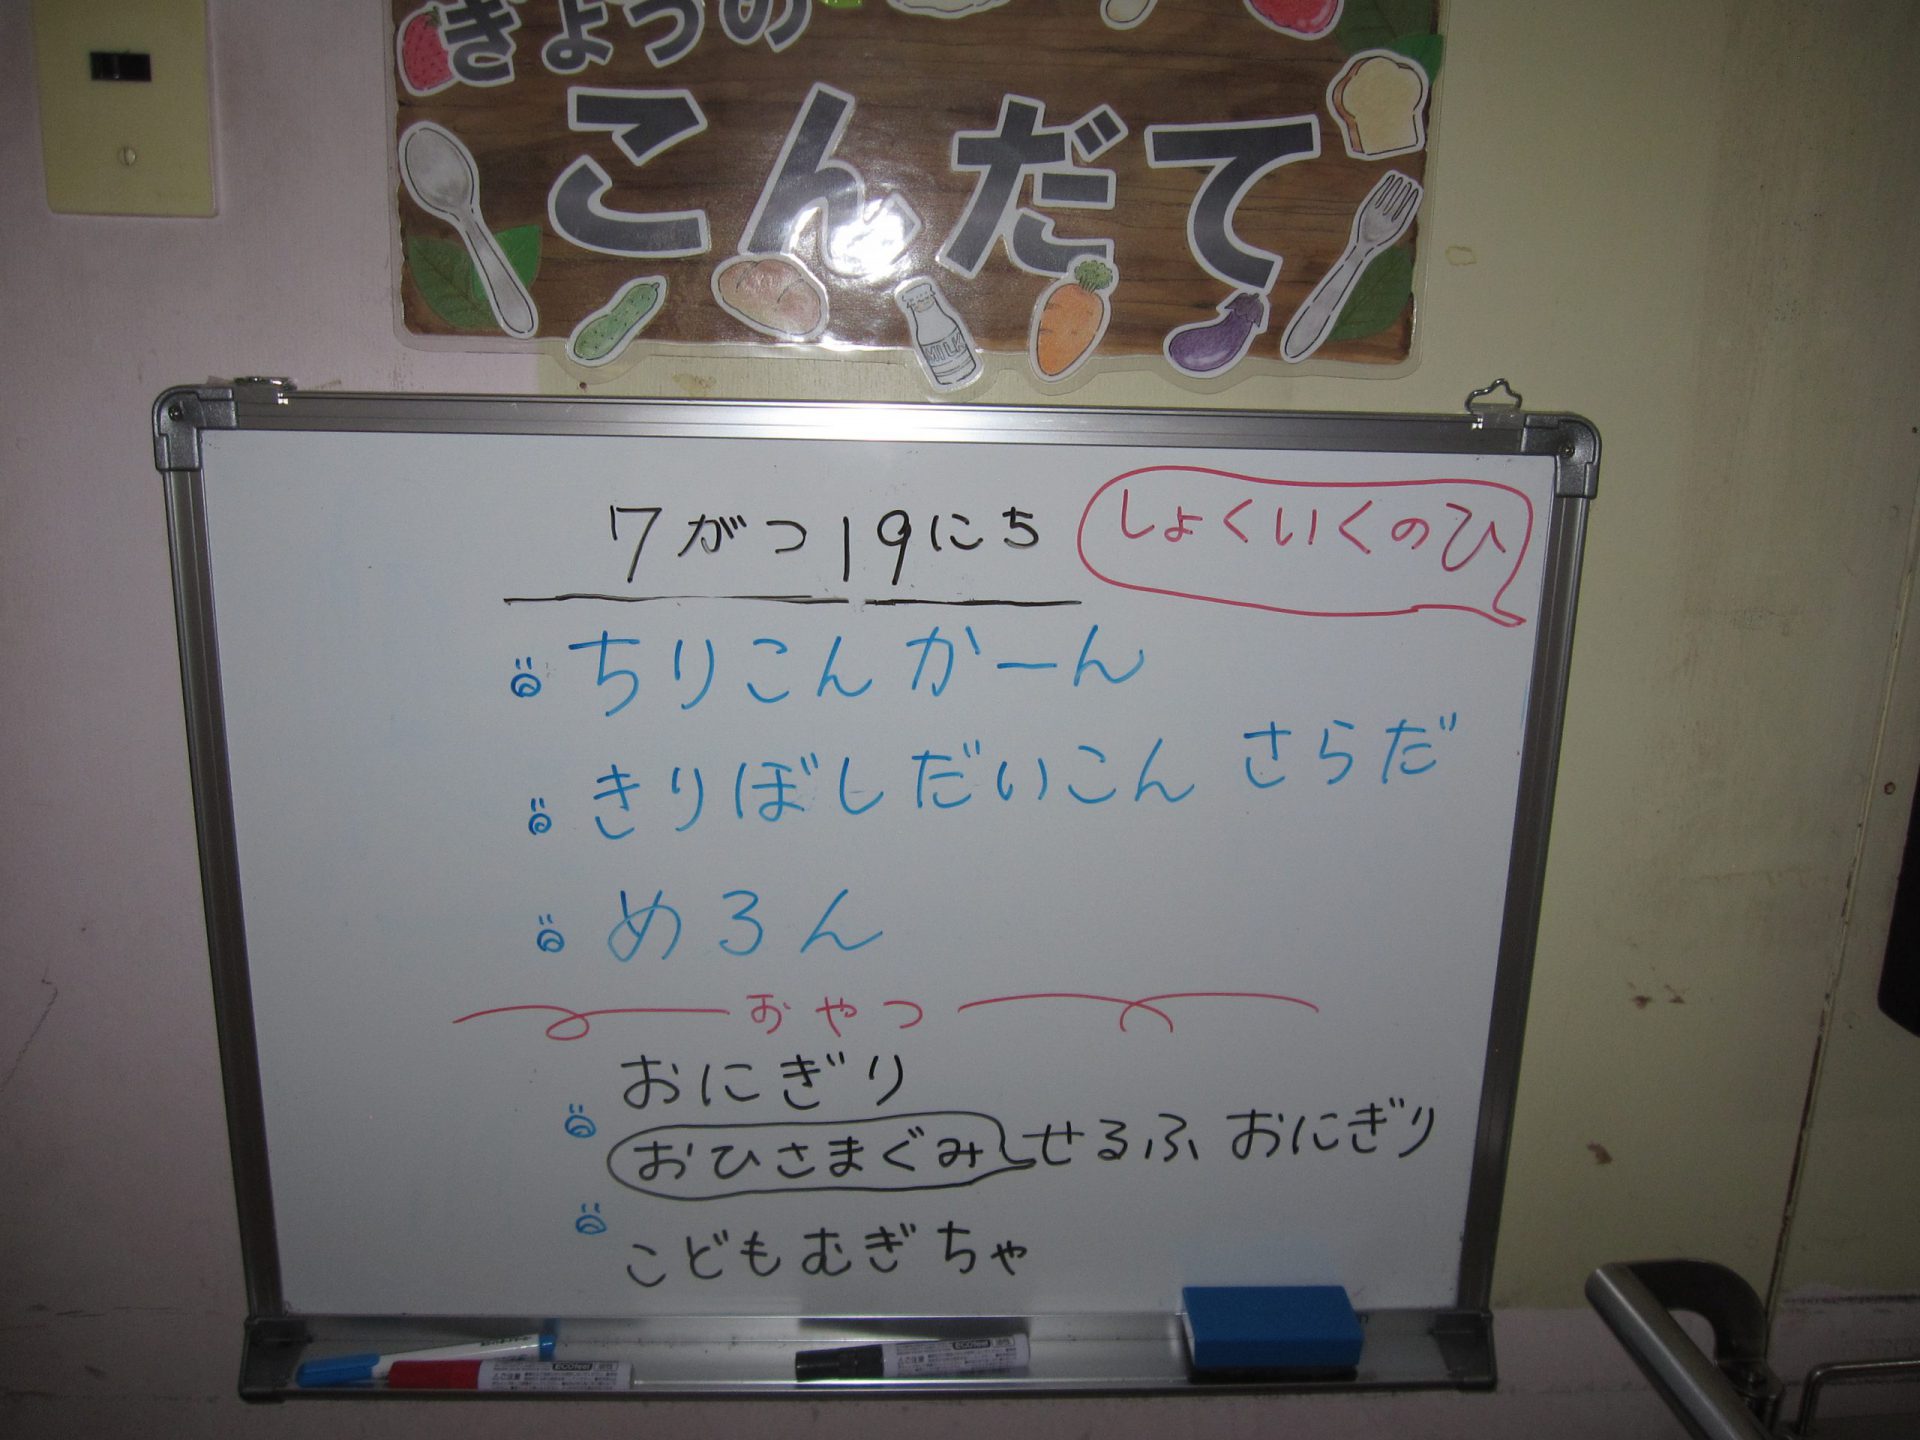 きょうの
こんだて
MILK
7がつ19にち しょくいくのひ
ちりこんかーん
きりぼしだいこん さらだ
めろん
おやつ
おにぎり
おひさまぐみ せるふ おにぎり
こどもむぎちゃ